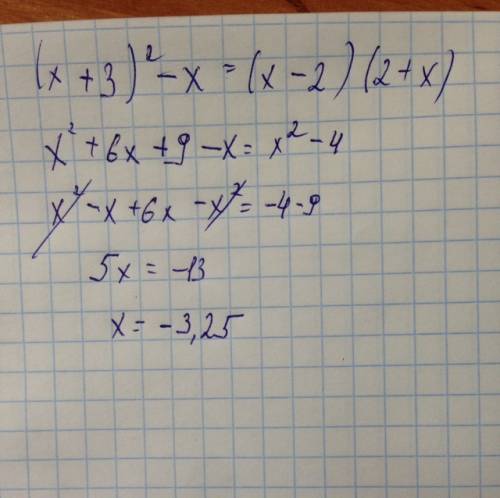 (x + 3)² - x = (x - 2)(2 + x)
x² + 6x + 9 - x = x² - 4
x² - x + 6x - x² = -4 - 9
5x = -13
x = -3,25